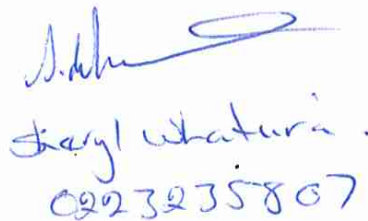 Sheryl Whatura.
02232235807